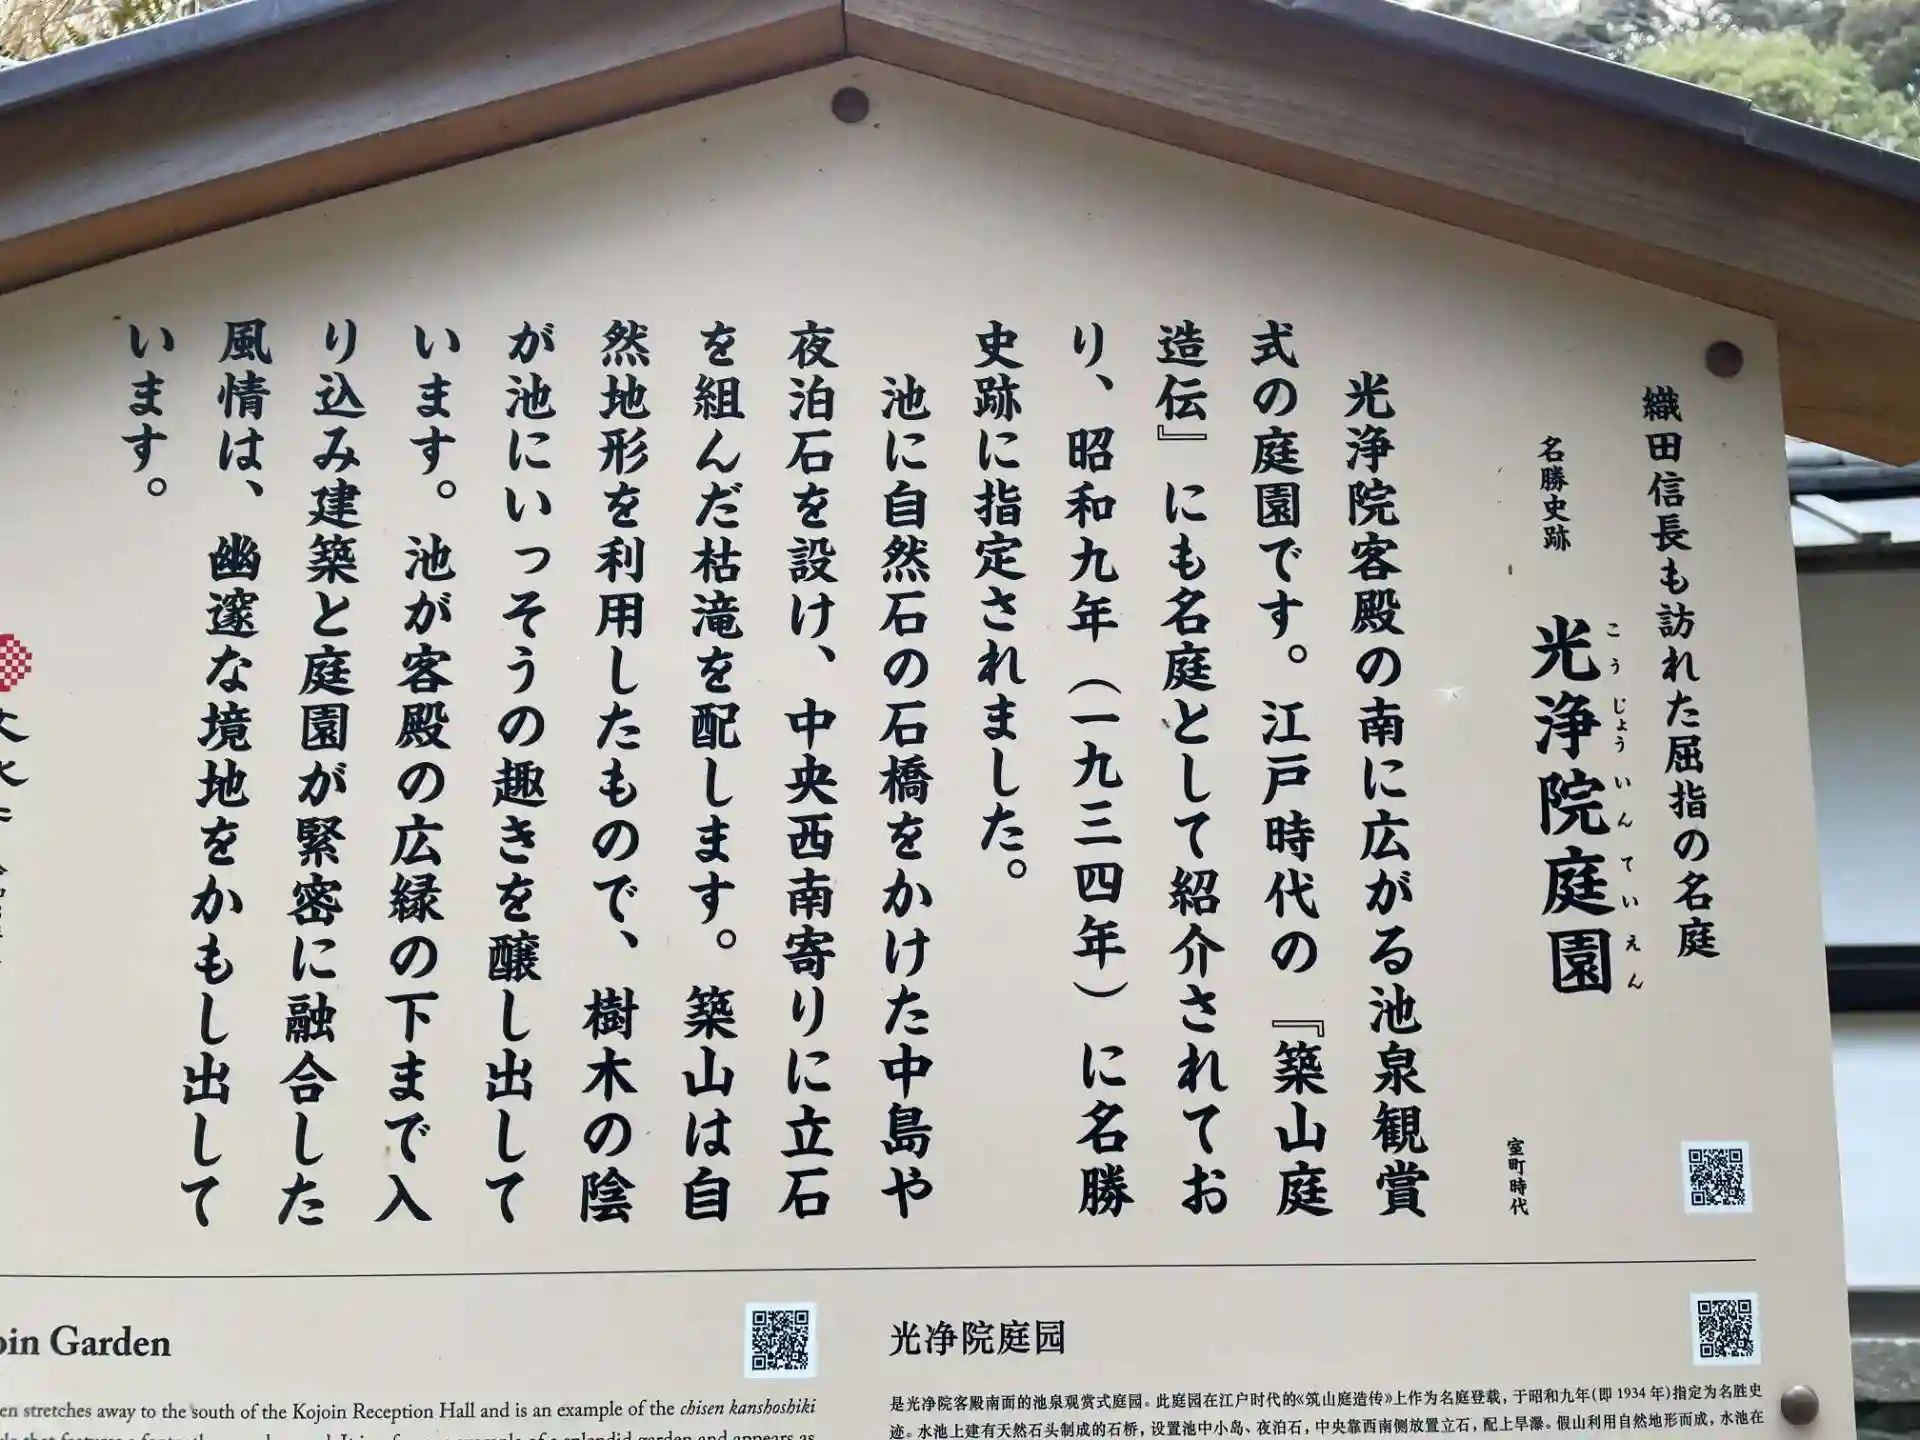 織田信長も訪れた屈指の名庭
名勝史跡
光浄院庭園
こうじょういんていえん
室町時代
光浄院客殿の南に広がる池泉観賞
式の庭園です。江戸時代の『築山庭
造伝』にも名庭として紹介されてお
り、昭和九年（一九三四年）に名勝
史跡に指定されました。
池に自然石の石橋をかけた中島や
夜泊石を設け、中央西南寄りに立石
を組んだ枯滝を配します。築山は自
然地形を利用したもので、樹木の陰
が池にいっそうの趣きを醸し出して
います。池が客殿の広縁の下まで入
り込み建築と庭園が緊密に融合した
風情は、幽邃な境地をかもし出して
います。
Garden
stretches away to the south of the Kojoin Reception Hall and is an example of the chisen kanshoshiki
光净院庭园
是光净院客殿南面的池泉观赏式庭园。此庭园在江户时代的《筑山庭造传》上作为名庭登载，于昭和九年(即1934年)指定为名胜史
迹。水池上建有天然石头制成的石桥，设置池中小岛、夜泊石，中央靠西南侧放置立石，配上旱瀑。假山利用自然地形而成，水池在